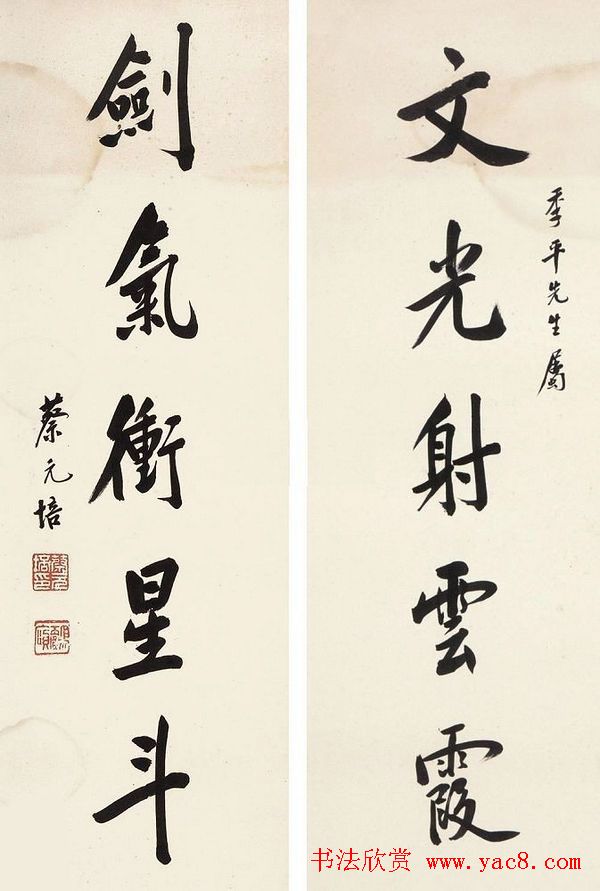 季平先生屬
文光射雲霞
劍氣衝星斗
蔡元培
书法欣赏 www.yac8.com